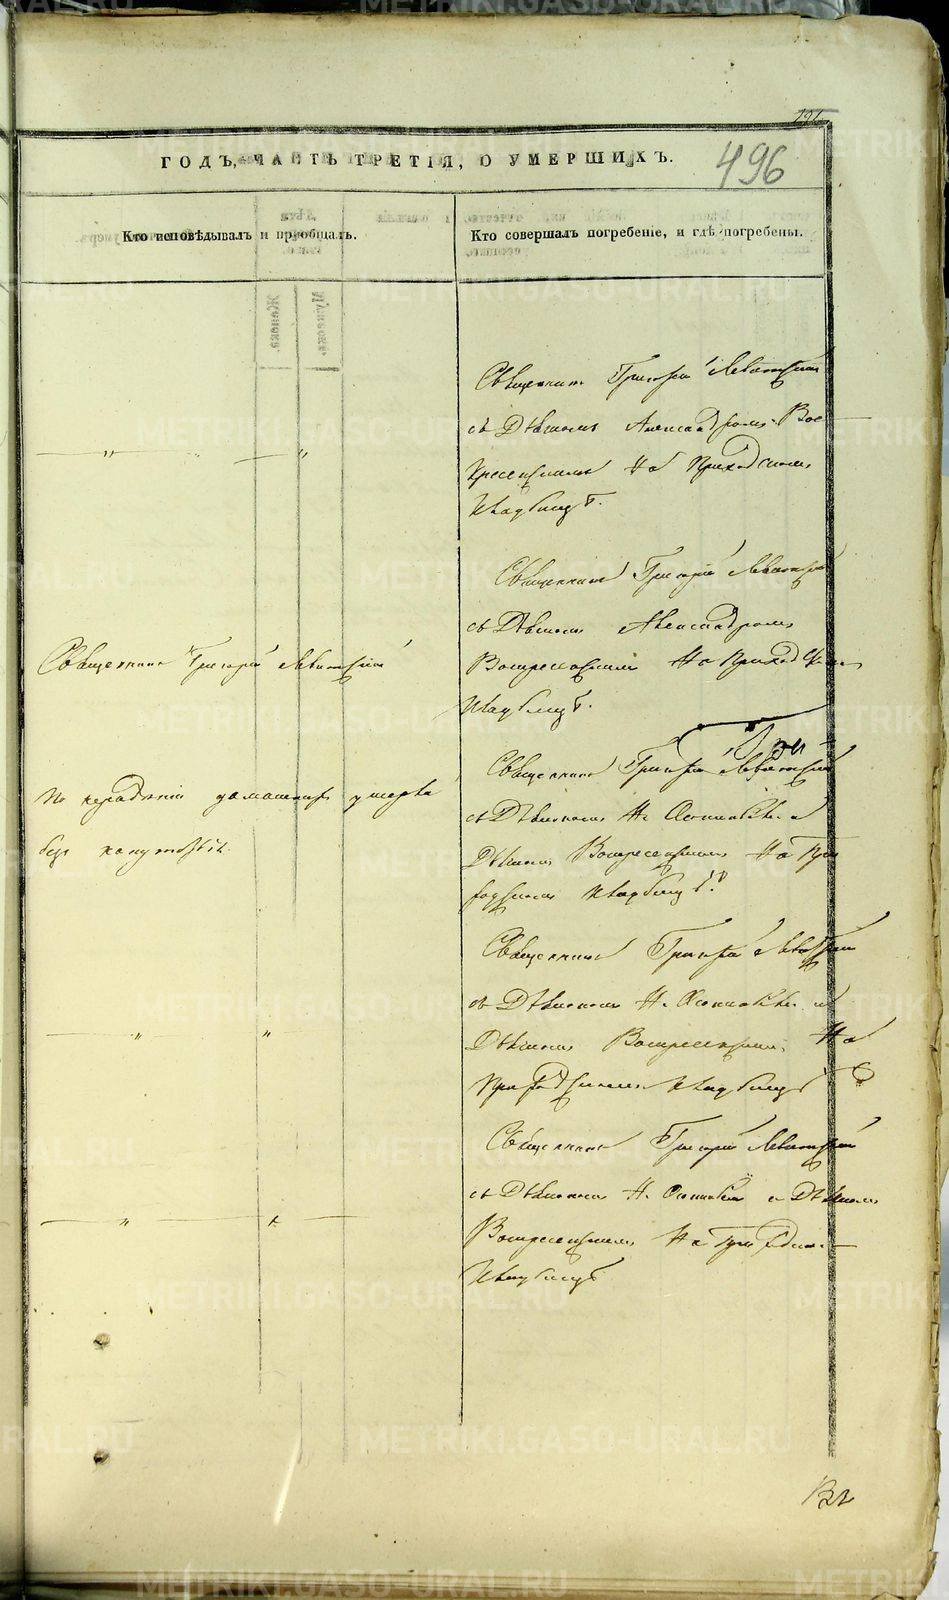 ГОДЪ, ЧАСТЬ ТРЕТІЯ, О УМЕРШИХЪ.
496
Кто исповѣдывалъ и пріобщалъ.
Кто совершалъ погребеніе, и гдѣ погребены.
Священникъ Григорій Левитскій
съ Дьячкомъ Александромъ Вос
кресенскимъ на Приходскомъ
Кладбищѣ.
Священникъ Григорій Левитскій
съ Дьячкомъ Александромъ
Священникъ Григорій Левитскій
Воскресенскимъ на Приходском
Кладбищѣ.
Священникъ Григорій Левитскій
По нерадѣнію домашнихъ умерла
съ Дьякономъ и
безъ напутствія.
Дьячкомъ Воскресенскимъ на При
ходскомъ Кладбищѣ.
Священникъ Григорій Левитскій
съ Дьякономъ и
Дьячкомъ Воскресенскимъ на
Приходскомъ Кладбищѣ
Священникъ Григорій Левитскій
съ Дьякономъ и Дьячкомъ
Воскресенскимъ на Приходском
Кладбищѣ
METRIKI.GASO-URAL.RU